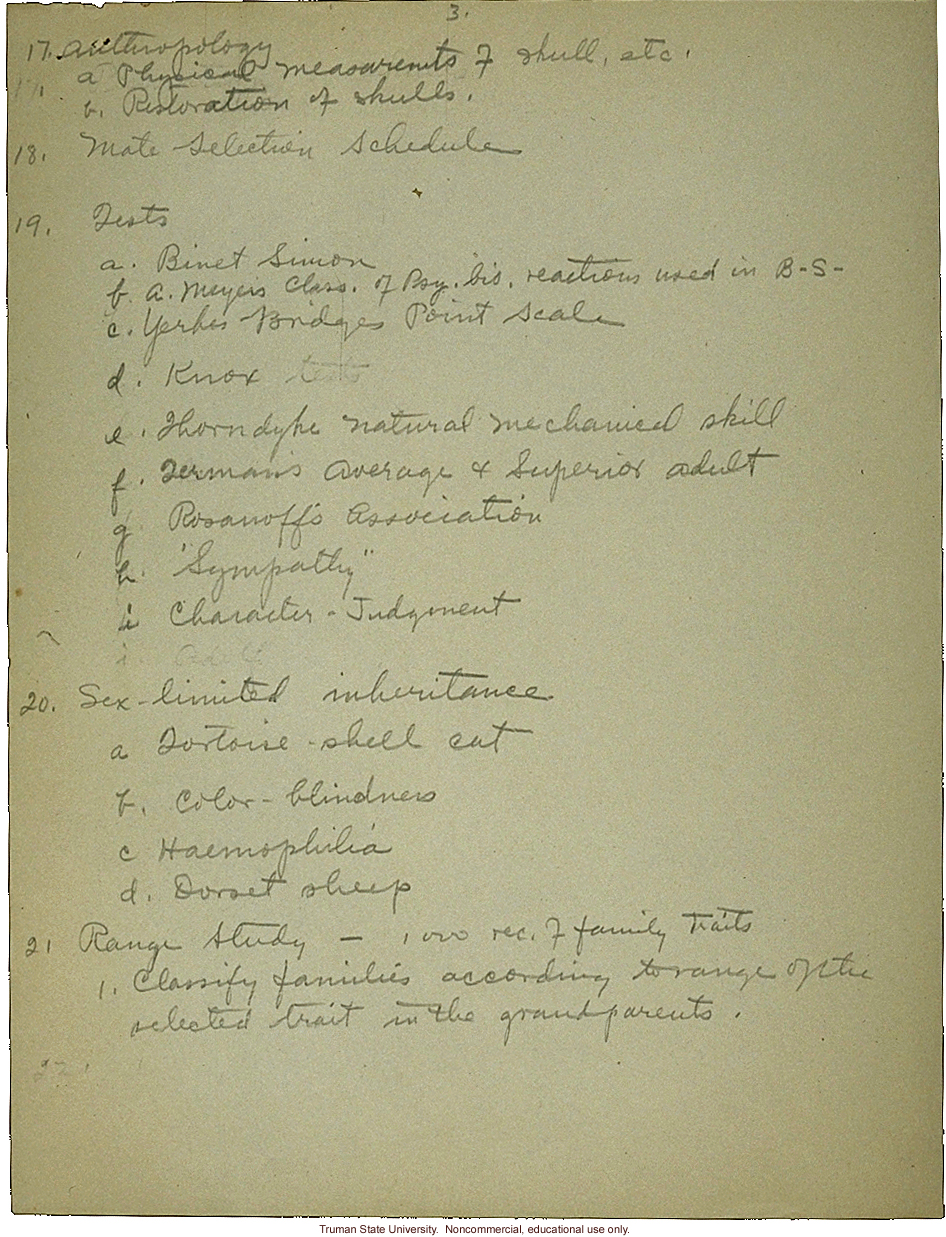 3.
17. Anthropology
a Physical measurements of skull, etc.
b. Restoration of skulls.
18. Mate Selection Schedule
19. Tests
a. Binet Simon
b. A. Meyers Class. of Psy. bio. reactions used in B-S-
c. Yerkes Bridges Point Scale
d. Knox tests
e. Thorndyke natural mechanical skill
f. Terman's Average & Superior adult
g Rosanoff's Association
h. "Sympathy"
i Character-Judgment
i.
20. Sex-limited inheritance
a Tortoise-shell cat
b. Color-blindness
c Haemophilia
d. Dorset sheep
21 Range Study — 1000 rec. of family traits
1. Classify families according to range of the
selected trait in the grandparents.
22.
Truman State University. Noncommercial, educational use only.